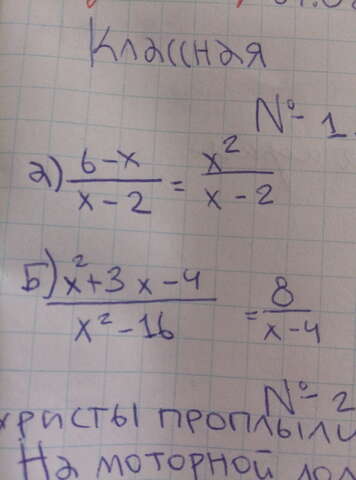 Классная
№ 1
а) 6-x / x-2 = x² / x-2
Б) x²+3x-4 / x²-16 = 8 / x-4
№ 2
проплыли
На моторной